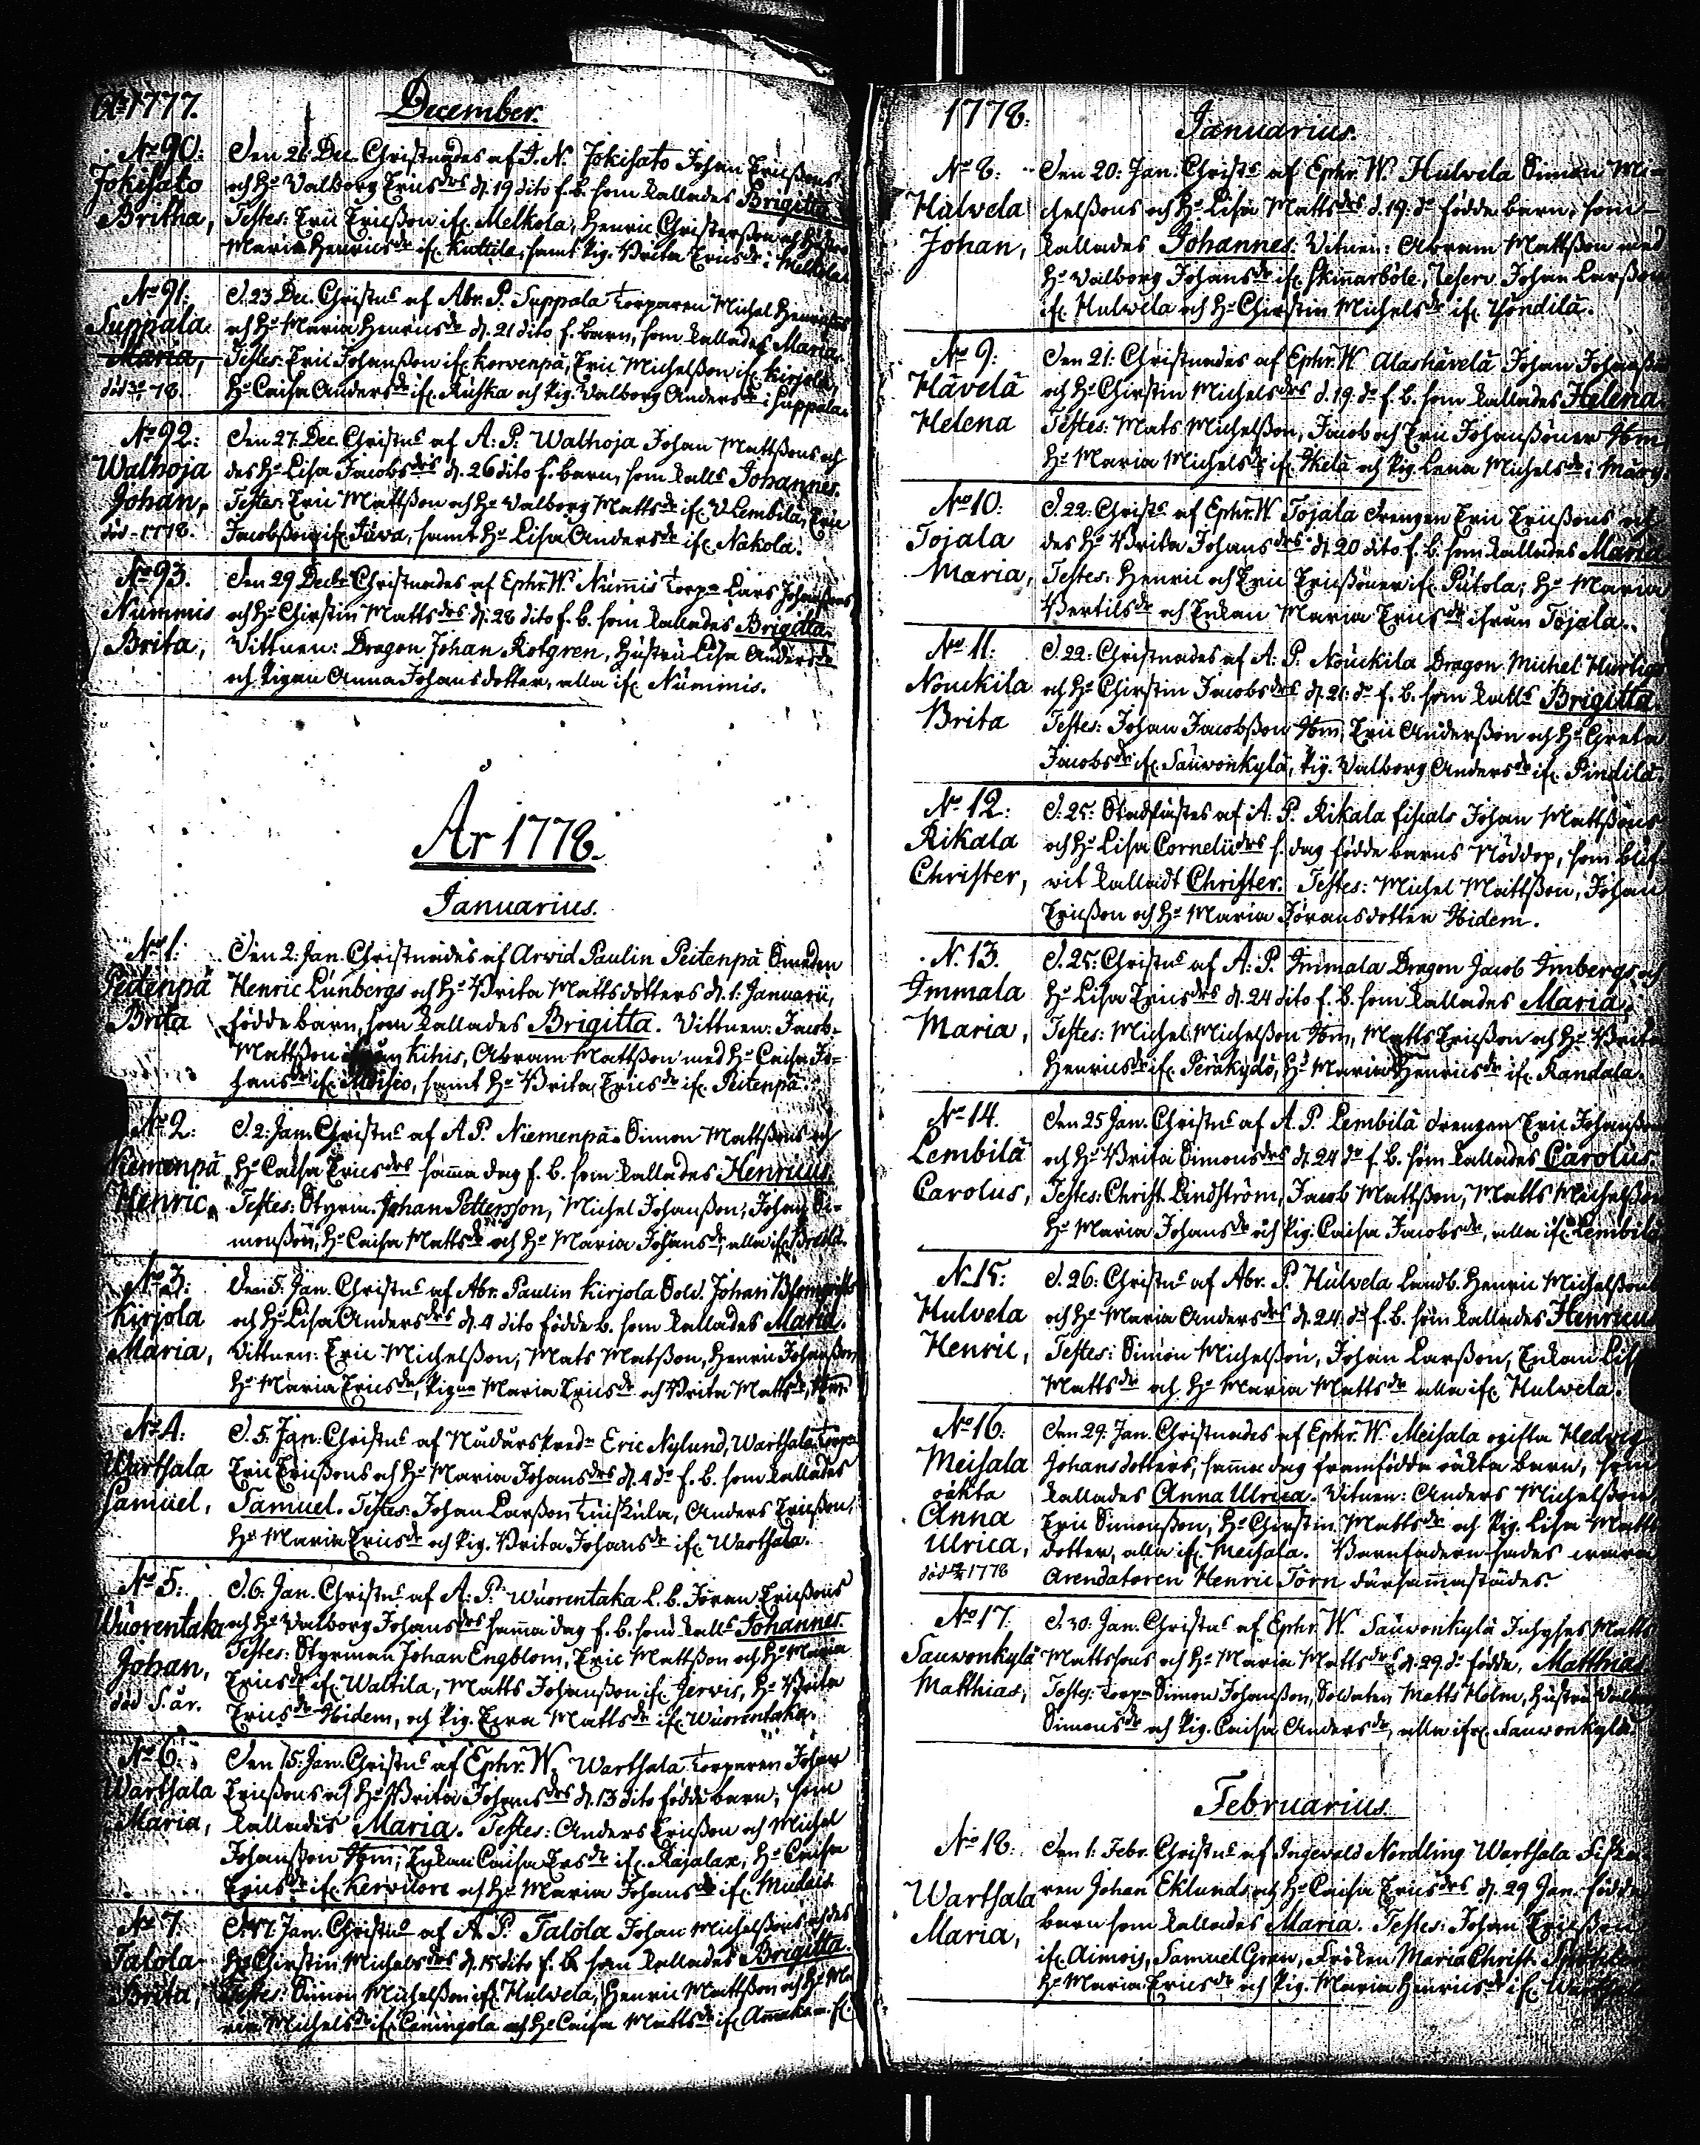 1777. December.
No 90: Den 21 Dec. Christnades af J. N. Jokisato Johan Ericßons
Jokisato och Ho Valborg Ericsdrs d. 19 dito f. b. som kallades Brigitta.
Britha, Testes: Eric Ericßon ifr. Melkola, Henric Christersßon och Hustru
Maria Henricsdr ifr. Kuttila, samt Pig. Brita Ericsdr i Melkola.
No 91: D. 23 Dec. Christns af Abr. P. Suppala torparen Michel Henricßons
Suppala och Ho Maria Henricsdr d. 21 dito f. barn, som kallades Maria.
Maria, Testes: Eric Johanßon ifr. Korvenpä, Eric Michelßon ifr. Kirjola,
död 78. Ho Caisa Andersdr ifr. Ruska och Pig. Valborg Andersdr i Suppala.
No 92: Den 27. Dec. Christns af A: P: Walhoja Johan Mattßons och
Walhoja des Ho Lisa Jacobsdrs d. 26 dito f. barn, som kalls Johannes.
Johan, Testes: Eric Mattßon och Ho Valborg Mattsdr ifr. Lembilä, Eric
död 1778. Jacobßon ifr. Juva, samt Ho Lisa Andersdr ifr. Nakola.
No 93. Den 29 Decbr Christnades af Ephr. W. Nummis torpn Lars Johanßons
Nummis och Ho Chirstin Mattsdrs d. 28 dito f. b. som kallades Brigitta.
Brita, Vittnen: Dragon Johan Rotgren, Hustru Lisa Andersdr
och Pigan Anna Johansdotter, alla ifr. Nummis.
År 1778.
Januarius.
No 1: Den 2: Jan. Christnades af Arvid Paulin Peitenpä Smeden
Peitenpä Henric Lunbergs och Ho Brita Mattsdotters d. 1: Januarii,
Brita födde barn, som kallades Brigitta. Vittnen: Jacob
Mattßon ifrån Kihis, Abram Mattßon med Ho Caisa Jo-
hansdr ifr. samt Ho Brita Ericsdr ifr. Peitenpä.
No 2: D. 2: Jan. Christns af A P. Niemenpä Simon Mattßons och
Niemenpä Ho Caisa Ericsdrs samma dag f. b. som kallades Henricus.
Henric, Testes: Styrm. Johan Pettersson, Michel Johanßon, Johan Si-
monßon, Ho Caisa Mattsdr och Ho Maria Johansdr, alla ifr.
No 3: Den 5. Jan. Christns af Abr. Paulin Kirjola Sold. Johan
Kirjola och Ho Lisa Andersdrs d. 4 dito födde b. som kallades Maria.
Maria, Vittnen: Eric Michelßon, Mats Matßon, Henric Johanßon
Ho Maria Ericsdr, Pigan Maria Ericsdr och Brita Mattsdr,
No 4: D. 5. Jan. Christns af Eric Nylund, Warthala
Warthala Eric Ericßons och Ho Maria Johansdrs d. 4 do f. b. som kallades
Samuel, Samuel. Testes: Johan Larßon Anders Ericßon,
Ho Maria Ericsdr och Pig. Brita Johansdr ifr. Warthala.
No 5: D. 6. Jan. Christns af A: P. Wuorentaka L. b. Jöran Ericßons
Wuorentaka och Ho Valborg Johansdrs samma dag f. b. som kalls Johannes
Johan, Testes: Styrman Johan Engblom, Eric Mattßon och Ho Maria
död s. år. Ericsdr ifr. Waltila, Matts Johanßon ifr. Jervis, Ho Brita
Ericsdr Ibidem, och Pig. Mattsdr ifr. Wuorentaka.
No 6: Den 15. Jan. Christns af Ephr. W. Warthala torparen Johan
Warthala Ericßons och Ho Brita Johansdrs d. 13 dito födde barn, som
Maria, kallades Maria. Testes: Anders Ericßon och Michel
Johanßon Ibm, Enkan Caisa Ersdr ifr. Rajalax, Ho Caisa
Ericsdr ifr. och Ho Maria Johansdr ifr.
No 7. D. 17. Jan. Christns af A. P. Talola Johan Michelßons och des
Talola Ho Chirstin Michelsdrs d. 15 dito f. b. som kallades Brigitta.
Brita, Testes: Simon Michelßon ifr. Hulvela, Henric Mattßon och Ho Ma-
ria Michelsdr ifr. och Ho Caisa Mattsdr ifr.
1778. Januarius.
No 8: Den 20: Jan: Christs af Ephr. W. Hulvela Simon Mi-
Halvela chelßons och Ho Lisa Mattsdrs d. 19: do födde barn, som
Johan, kallades Johannes. Vitnen: Abram Mattßon med
Ho Valborg Johansdr ifr. Skinnarböle, Reserv. Johan Larßon
ifr. Hulvela och Ho Chirstin Michelsdr ifr. Yöndilä.
No 9: Den 21: Christnades af Ephr. W. Alashävelä Johan Johanßons
Hävelä och Ho Chirstin Michelsdrs d. 19. do f. b. som kallades Helena.
Helena Testes: Mats Michelßon, Jacob och Eric Johanßöner Ibm,
Ho Maria Michelsdr ifr. och Pig. Lena Michelsdr i
No 10: D. 22: Christs af Ephr. W. Tojala drengen Eric Ericßons och
Tojala des Ho Brita Johansdrs d. 20 dito f. b. som kallades Maria.
Maria, Testes: Henric och Eric Ericßöner ifr. Putola, Ho Maria
Bertilsdr och Enkan Maria Ericsdr ifrån Tojala.
No 11: D. 22: Christnades af A. P. Nouckila Dragon Michel Hurtigs
Nouckila och Ho Chirstin Jacobsdrs d. 21: do f. b. som kalls Brigitta.
Brita Testes: Johan Jacobßon Ibm, Eric Anderßon och Ho Greta
Jacobsdr ifr. Sauvonkylä, Pig. Valborg Andersdr ifr. Pindilä.
No 12: D. 25: Stadfästes af A. P. Rikala fiscals Johan Mattßons
Rikala och Ho Lisa Corneliidrs s. dag födde barns Nöddop, som blif-
Christer, vit kalladt Christer. Testes: Michel Mattßon, Johan
Ericßon och Ho Maria Jöransdotter Ibidem.
N. 13. D. 25. Christns af A. P. Immala Dragon Jacob Imbergs och
Immala Ho Lisa Ericsdrs d. 24 dito f. b. som kallades Maria.
Maria, Testes: Michel Michelßon Ibm, Matts Ericßon och Ho Brita
Henricsdr ifr. Peräkydö, Ho Maria Henricsdr ifr. Kandala.
No 14. Den 25 Jan. Christns af A. P. Lembilä drengen Eric Johanßons
Lembilä och Ho Brita Simonsdrs d. 24 do f. b. som kallades Carolus.
Carolus, Testes: Christ. Lindström, Jacob Mattßon, Matts Michelßon
Ho Maria Johansdr och Pig. Caisa Jacobsdr, alla ifr. Lembilä
No 15: D. 26: Christns af Abr. P. Hulvela Landb. Henric Michelßons
Hulvela och Ho Maria Andersdrs d. 24 do f. b. som kallades Henricus
Henric, Testes: Simon Michelßon, Johan Larßon, Enkan Lisa
Mattsdr och Ho Maria Mattsdr alla ifr. Hulvela.
No 16: Den 29. Jan. Christnades af Ephr. W. Meisala ogifta Hedvig
Meisala Johansdotters, samma dag framfödda oäkta barn, som
oäkta kallades Anna Ulrica. Vitnen: Anders Michelßon,
Anna Eric Simonßon, Ho Chirstin Mattsdr och Pig. Lisa Matts
Ulrica, dotter, alla ifr. Meisala. Barnfadern sades vara
död 1778 Arendatoren Henric Törn därsammastädes.
No 17. D. 30: Jan. Christns af Ephr. W. Sauvonkylä Inhyses Matts
Sauvonkylä Mattssons och Ho Maria Mattsdrs d. 29. do födde, Matthias
Matthias, Testes: torpn Simon Johanßon, Soldaten Matts Holm, Hustru Valborg
Simonsdr och Pig. Caisa Andersdr, alla ifr. Sauvonkylä.
Februarius.
No 18: Den 1: Febr. Christns af Ingevald Nordling Warthala Fiska-
Warthala ren Johan Eklunds och Ho Caisa Ericsdrs d. 29 Jan. födde
Maria, barn som kallades Maria. Testes: Johan Ericßon
ifr. Aimois, Samuel Gren, Fröken Maria Christ.
Ho Maria Ericsdr och Pig. Maria Henricsdr ifr. Warthala